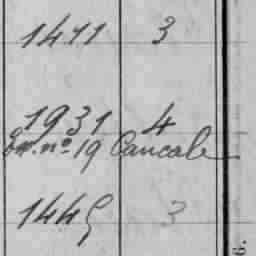 1411 3
1931 4
En. nº 19 Cancale
1445 3
6.